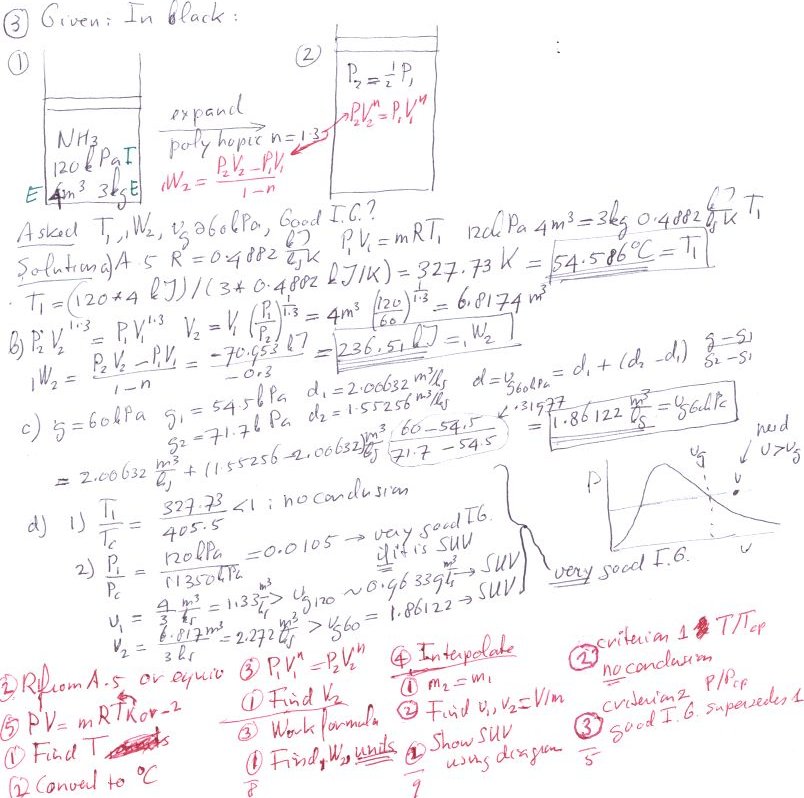 ③ Given: In black:
①
②
P₂ = ½ P₁
P₂V₂ⁿ = P₁V₁ⁿ
expand
polytropic n = 1.3
NH₃
120 kPa I
E 4m³ 3kg E
₁W₂ = (P₂V₂ - P₁V₁)/(1-n)
Asked T₁, ₁W₂, υg @ 60 kPa, Good I.G.?
Solution: a) A.5 R = 0.4882 kJ/kgK P₁V₁ = mRT₁ 120kPa 4m³ = 3kg 0.4882 kJ/kgK T₁
T₁ = (120*4 kJ)/(3*0.4882 kJ/K) = 327.73 K = 54.586°C = T₁
b) P₂V₂^1.3 = P₁V₁^1.3 V₂ = V₁ (P₁/P₂)^(1/1.3) = 4m³ (120/60)^(1/1.3) = 6.8174 m³
₁W₂ = (P₂V₂ - P₁V₁)/(1-n) = (-70.953 kJ)/(-0.3) = 236.51 kJ = ₁W₂
c) g = 60kPa g₁ = 54.5kPa d₁ = 2.00632 m³/kg d = υg60kPa = d₁ + (d₂ - d₁) (g - g₁)/(g₂ - g₁)
g₂ = 71.7kPa d₂ = 1.55256 m³/kg
= 2.00632 m³/kg + (1.55256 - 2.00632) m³/kg (60 - 54.5)/(71.7 - 54.5) .31977 = 1.86122 m³/kg = υg60kPa
d) 1) T₁/Tc = 327.73/405.5 <1 : no conclusion
2) P₁/Pc = 120kPa/11350kPa = 0.0105 → very good I.G.
if it is SUV
υ₁ = 4/3 m³/kg = 1.33 m³/kg > υg120 ~ 0.96339 m³/kg → SUV
υ₂ = 6.817m³/3kg = 2.272 m³/kg > υg60 = 1.86122 → SUV
very good I.G.
P
υg
need
υ > υg
υ
υ
② R from A.5 or equiv
⑤ PV = mRT K or -2
① Find T
② Convert to °C
③ P₁V₁ⁿ = P₂V₂ⁿ
① Find V₂
③ Work formula
① Find ₁W₂ units
8
④ Interpolate
① m₂ = m₁
② Find υ₁, υ₂ = V/m
② Show SUV
using diagram
9
② criterion 1 T/Tcp
no conclusion
criterion 2 P/Pcp
③ good I.G. supersedes 1
5